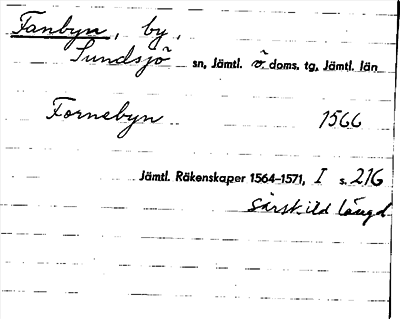 Fanbyn, by,
Sundsjö sn, Jämtl. ö doms. tg, Jämtl. län
Fornebyn 1566
Jämtl. Räkenskaper 1564-1571, I s. 216
särskild längd